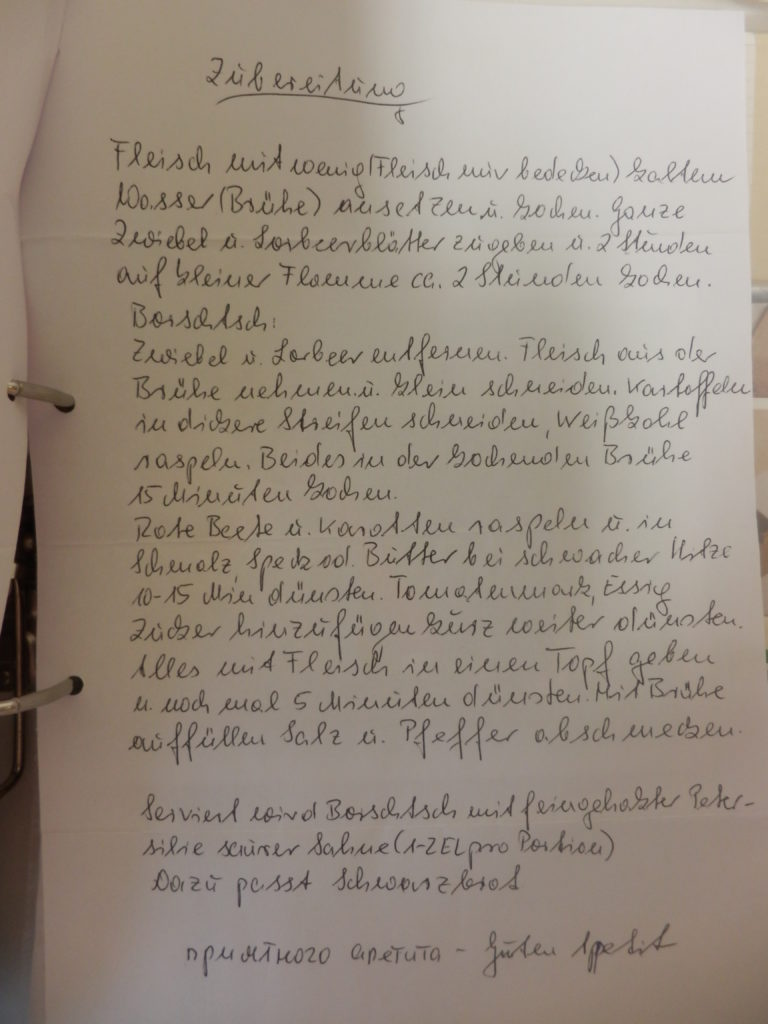 Zubereitung
Fleisch mit wenig (Fleisch nur bedecken) kaltem
Wasser (Brühe) ansetzen u. kochen. Ganze
Zwiebel u. Lorbeerblätter zugeben u. 2 Stunden
auf kleiner Flamme ca. 2 Stunden kochen.
Borschtsch:
Zwiebel u. Lorbeer entfernen. Fleisch aus der
Brühe nehmen u. klein schneiden. Kartoffeln
in dickere Streifen schneiden, Weißkohl
raspeln. Beides in der kochenden Brühe
15 Minuten kochen.
Rote Beete u. Karotten raspeln u. in
Schmalz, Speck od. Butter bei schwacher Hitze
10-15 Min dünsten. Tomatenmark, Essig
Zucker hinzufügen kurz weiter dünsten.
Alles mit Fleisch in einen Topf geben
u. noch mal 5 Minuten dünsten. Mit Brühe
auffüllen Salz u. Pfeffer abschmecken.
Serviert wird Borschtsch mit feingehakter Peter-
silie saurer Sahne (1-2EL pro Portion)
Dazu passt Schwarzbrot
приятного апетита - Guten Appetit